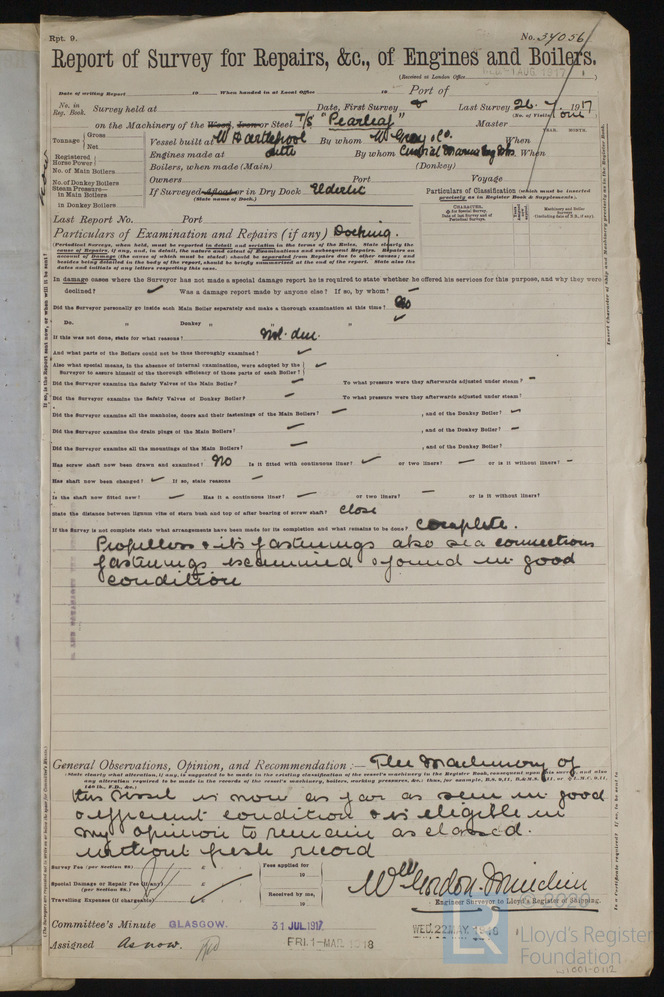 Rpt. 9.
No. 34056
Report of Survey for Repairs, &c., of Engines and Boilers.
(Received at London Office AUG 1917 )
Date of writing Report 19 When handed in at Local Office 19 Port of
No. in Reg. Book. Survey held at Date, First Survey & Last Survey 26.7.1917
(No. of Visits One )
on the Machinery of the Wood, Iron or Steel T/S "Pearleaf" Master
Tonnage Gross Net Vessel built at W Hartlepool By whom W Gray & Co. When YEAR. MONTH.
Registered Horse Power Engines made at ditto By whom Central Marine Eng Wks. When
No. of Main Boilers Boilers, when made (Main) (Donkey)
No. of Donkey Boilers Owners Port Voyage
Steam Pressure in Main Boilers If Surveyed afloat or in Dry Dock Elderslie
(State name of Dock.)
in Donkey Boilers
Particulars of Classification (which must be inserted precisely as in Register Book & Supplements).
Last Report No. Port
Particulars of Examination and Repairs (if any) Docking.
(Periodical Surveys, when held, must be reported in detail and seriatim in the terms of the Rules. State clearly the cause of Repairs, if any, and, in detail, the nature and extent of Examinations and subsequent Repairs. Repairs on account of Damage (the cause of which must be stated) should be separated from Repairs due to other causes; and besides being detailed in the body of the report, should be briefly summarised at the end of the report. State also the dates and initials of any letters respecting this case.
In damage cases where the Surveyor has not made a special damage report he is required to state whether he offered his services for this purpose, and why they were
declined? Was a damage report made by anyone else? If so, by whom? –
Did the Surveyor personally go inside each Main Boiler separately and make a thorough examination at this time? No
Do. " Donkey " " "
If this was not done, state for what reasons? Not due
And what parts of the Boilers could not be thus thoroughly examined?
Also what special means, in the absence of internal examination, were adopted by the
Surveyor to assure himself of the thorough efficiency of those parts of each Boiler?
Did the Surveyor examine the Safety Valves of the Main Boiler? To what pressure were they afterwards adjusted under steam?
Did the Surveyor examine the Safety Valves of Donkey Boiler? To what pressure were they afterwards adjusted under steam?
Did the Surveyor examine all the manholes, doors and their fastenings of the Main Boilers? , and of the Donkey Boiler?
Did the Surveyor examine the drain plugs of the Main Boilers? , and of the Donkey Boiler?
Did the Surveyor examine all the mountings of the Main Boilers? , and of the Donkey Boiler?
Has screw shaft now been drawn and examined? No Is it fitted with continuous liner? or two liners? – or is it without liners? –
Has shaft now been changed? If so, state reasons –
Is the shaft now fitted new? Has it a continuous liner? – or two liners? – or is it without liners?
State the distance between lignum vitæ of stern bush and top of after bearing of screw shaft? close
If the Survey is not complete state what arrangements have been made for its completion and what remains to be done? Complete.
Propellers & its fastenings also sea connections
fastenings examined & found in good
condition
General Observations, Opinion, and Recommendation :— The Machinery of
(State clearly what alteration, if any, is suggested to be made in the existing classification of the vessel's machinery in the Register Book, consequent upon this survey, and also
this vessel is now as far as seen in good
& efficient condition & is eligible in
my opinion to remain as classed.
without fresh record
Survey Fee (per Section 28)
Special Damage or Repair Fee (if any) (per Section 28.)
Travelling Expenses (if chargeable)
Fees applied for 19
Received by me, 19
Wm Gordon-
Engineer Surveyor to Lloyd's Register of Shipping.
Committee's Minute GLASGOW. 31 JUL 1917
Assigned As now. FRI. 1-MAR. 1918 WED. 22 MAY. 1918
© 2020
LR Lloyd's Register
Foundation
1001-0112